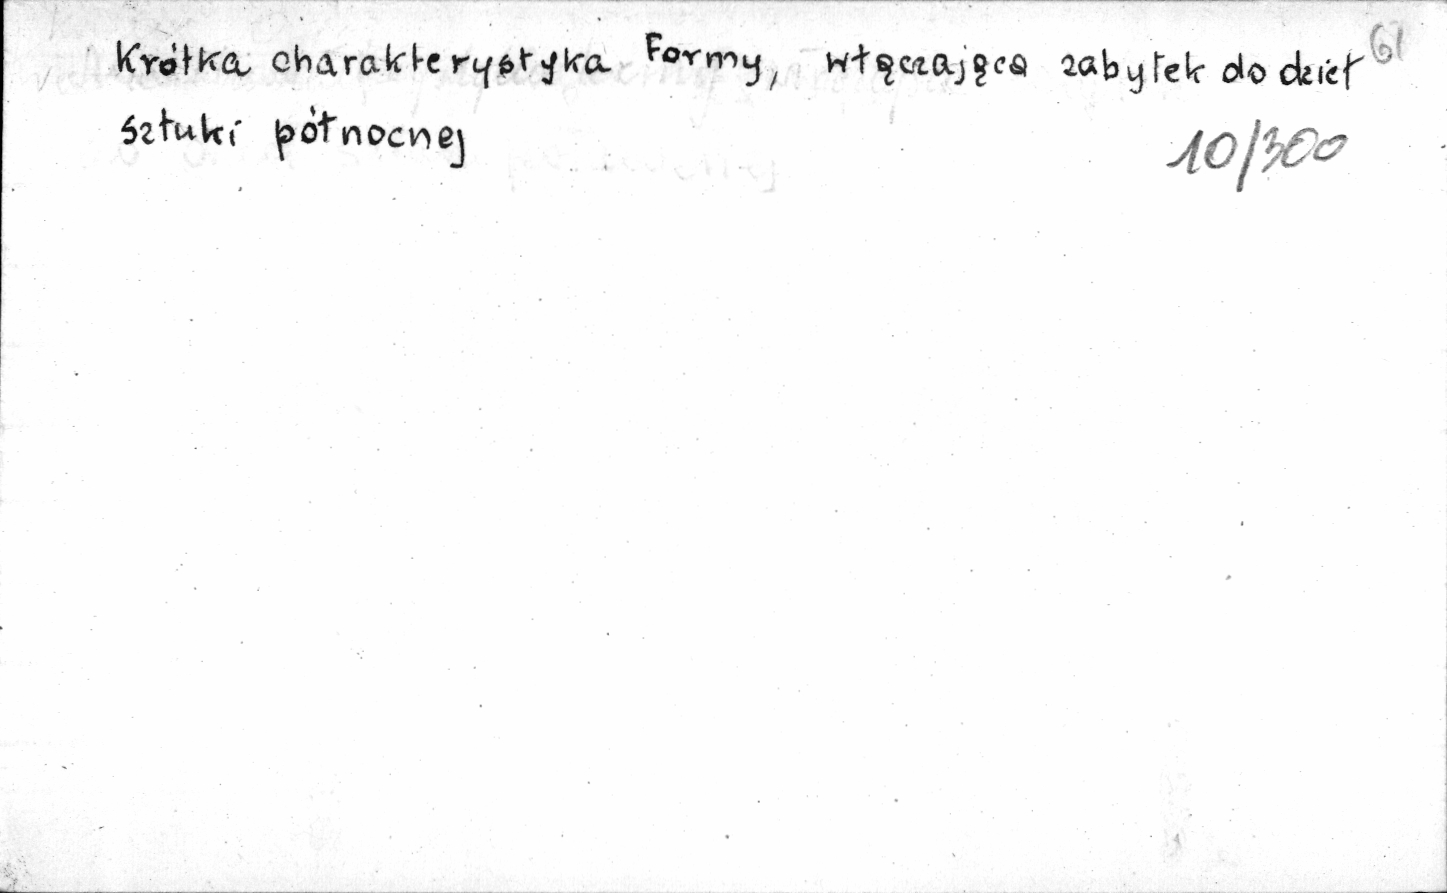 Krótka charakterystyka Formy, włączająca zabytek do dzieł 61
sztuki północnej
10/300